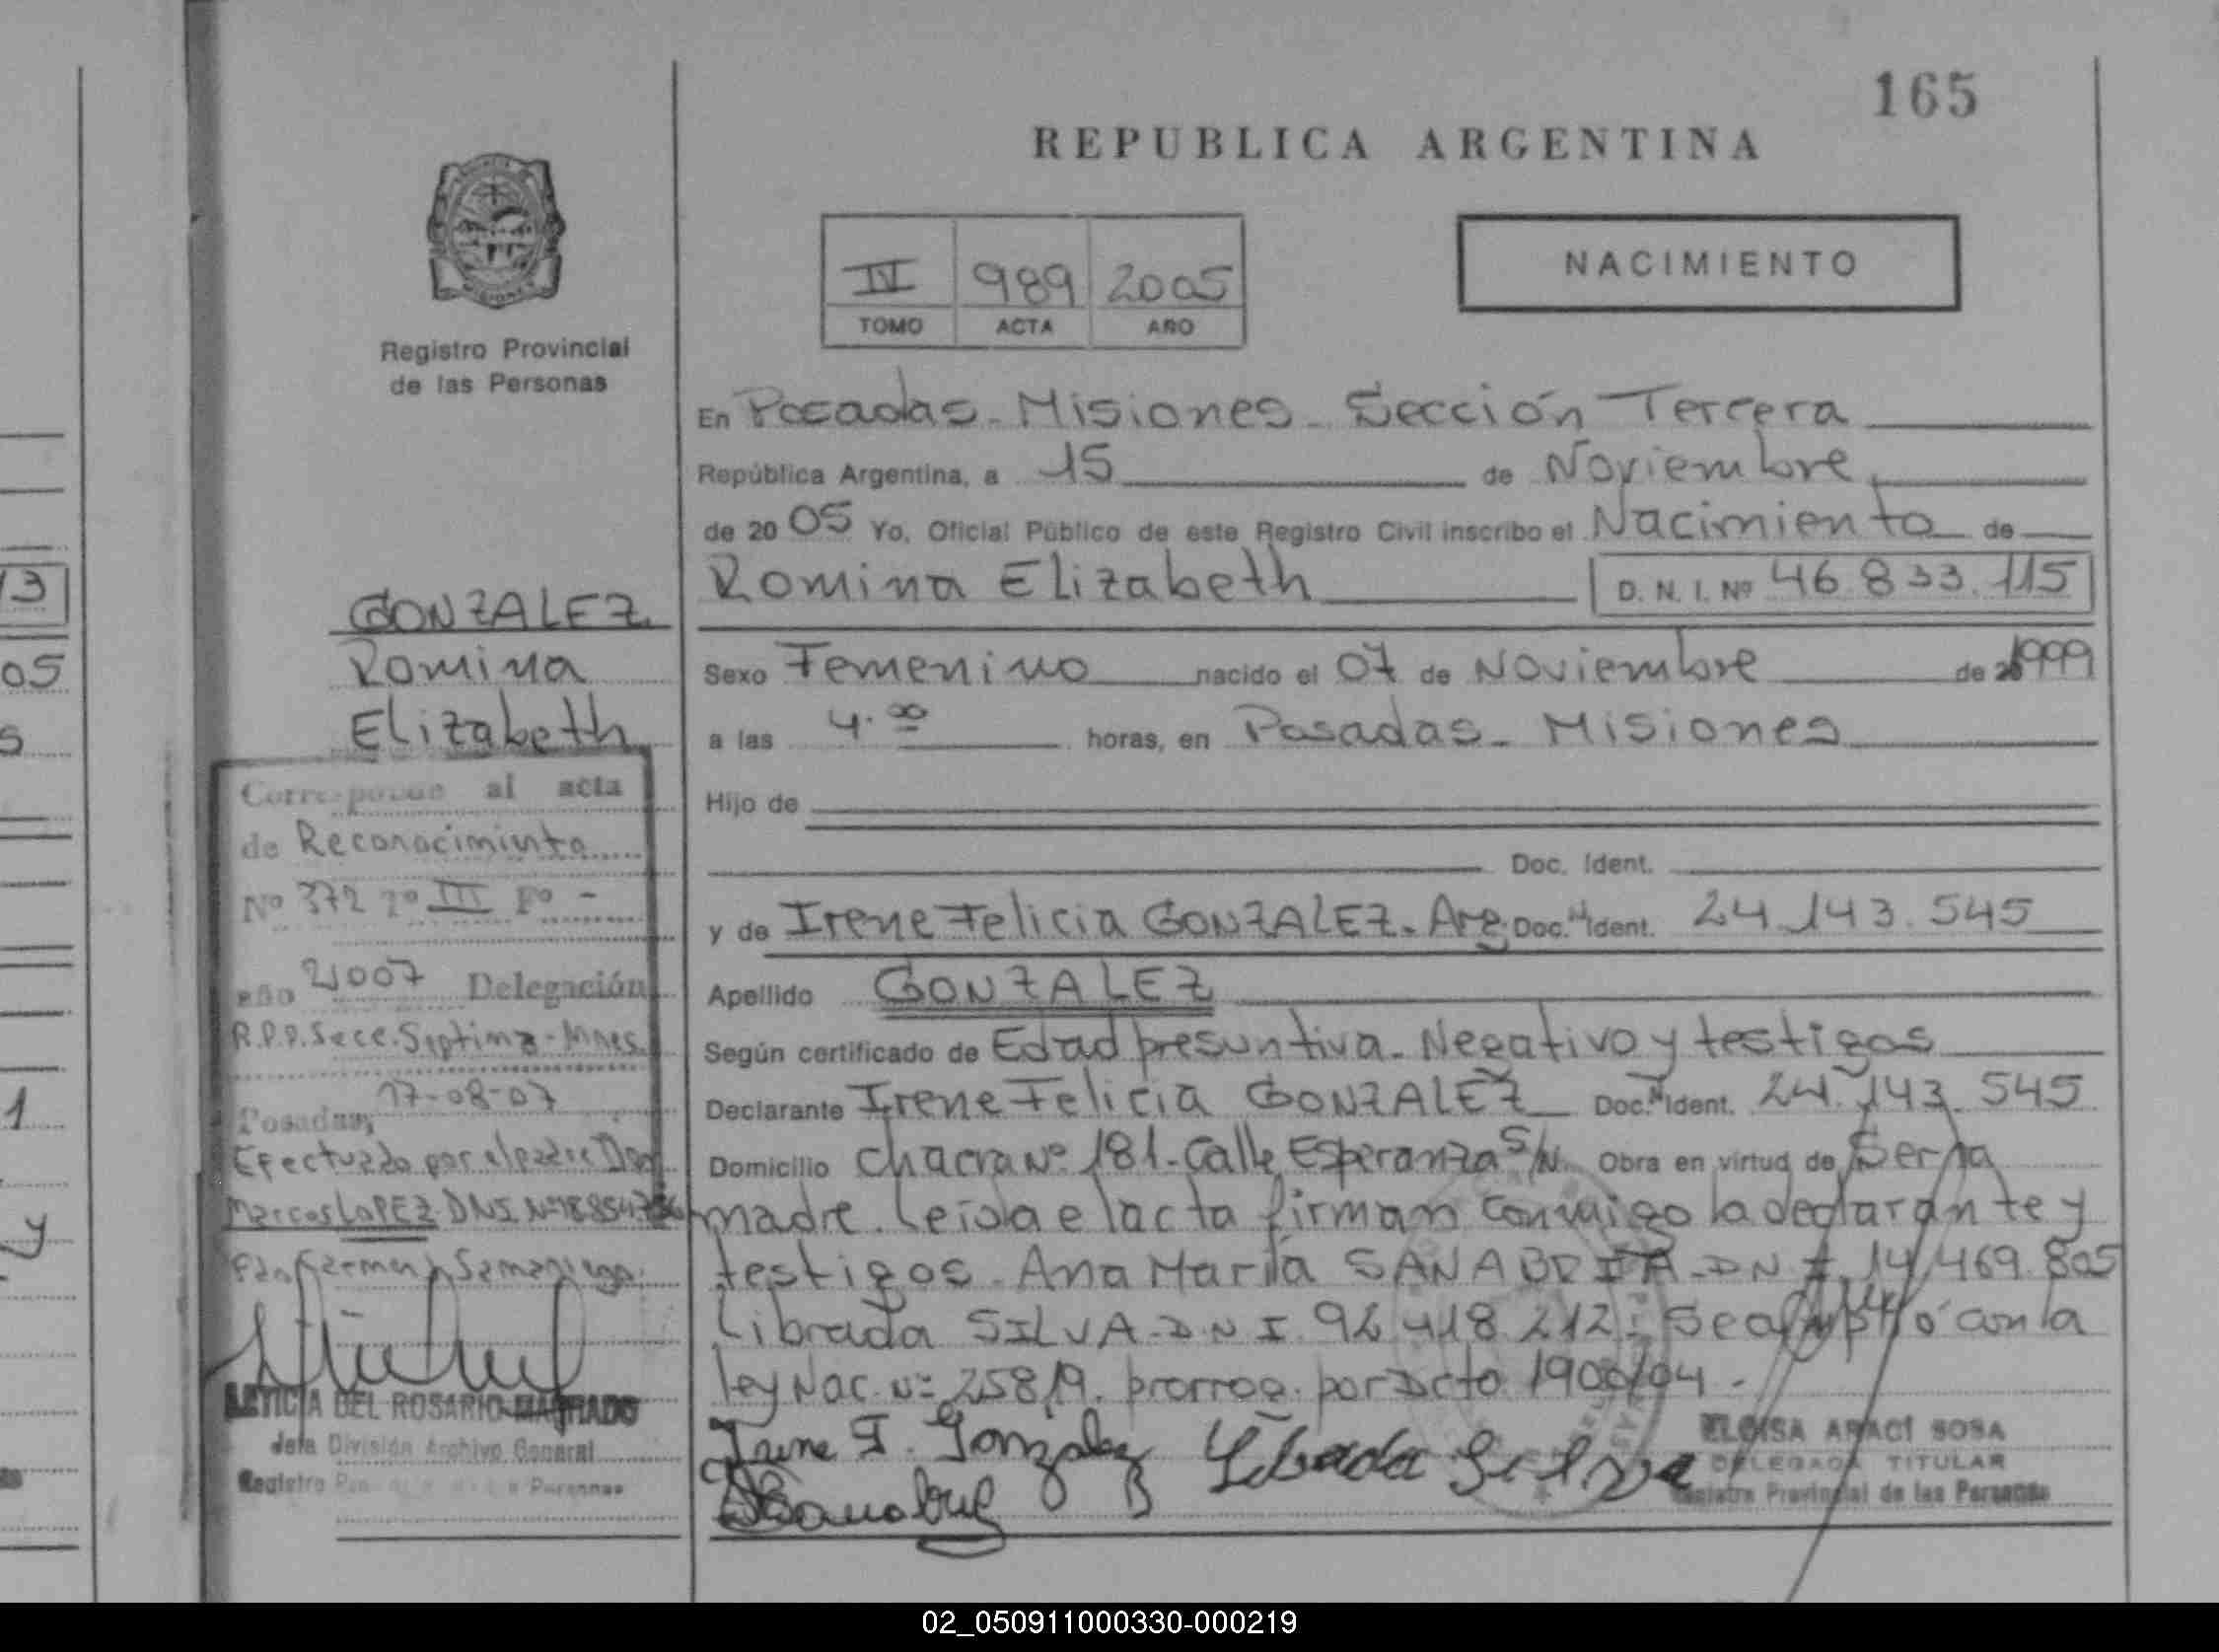 165
REPUBLICA ARGENTINA
NACIMIENTO
IV 989 2005
TOMO ACTA AÑO
Registro Provincial
de las Personas
En Posadas - Misiones - Sección Tercera
República Argentina, a 15 de Noviembre
de 20 05 Yo, Oficial Público de este Registro Civil inscribo el Nacimiento de
Romina Elizabeth D. N. I. Nº 46.833.115
Sexo Femenino nacido el 07 de Noviembre de 1999
a las 4.00 horas, en Posadas - Misiones
Hijo de
Doc. Ident.
y de Irene Felicia GONZALEZ. Arg. Doc. N Ident. 24.143.545
Apellido GONZALEZ
Según certificado de Edad presuntiva. Negativo y testigos
Declarante Irene Felicia GONZALEZ Doc. N Ident. 24.143.545
Domicilio Chacra Nº 181 - Calle Esperanza S/N. Obra en virtud de Ser la
madre. Leida el acta firman conmigo la declarante y
testigos. Ana María SANABRIA - DNI. 14.469.805
Librada SILVA - DNI. 92.418.212. Se amplió con la
ley Nac. Nº 25819. prorrog. por Dcto 1900/04.-
Irene F. Gonzalez Librada Silva
ELOISA ARACI SOSA
DELEGADA TITULAR
Registro Provincial de las Personas
GONZALEZ
Romina
Elizabeth
Corresponde al acta
de Reconocimiento
Nº 372 Tº III Fº -
año 2007 Delegación
R.P.P. Secc. Septima - Mnes.
Posadas, 17-08-07
Efectuado por el padre Don
Marcos LOPEZ DNI Nº
LETICIA DEL ROSARIO MACHADO
Jefa División Archivo General
Registro Personas
13
05
s
1
y
02_050911000330-000219